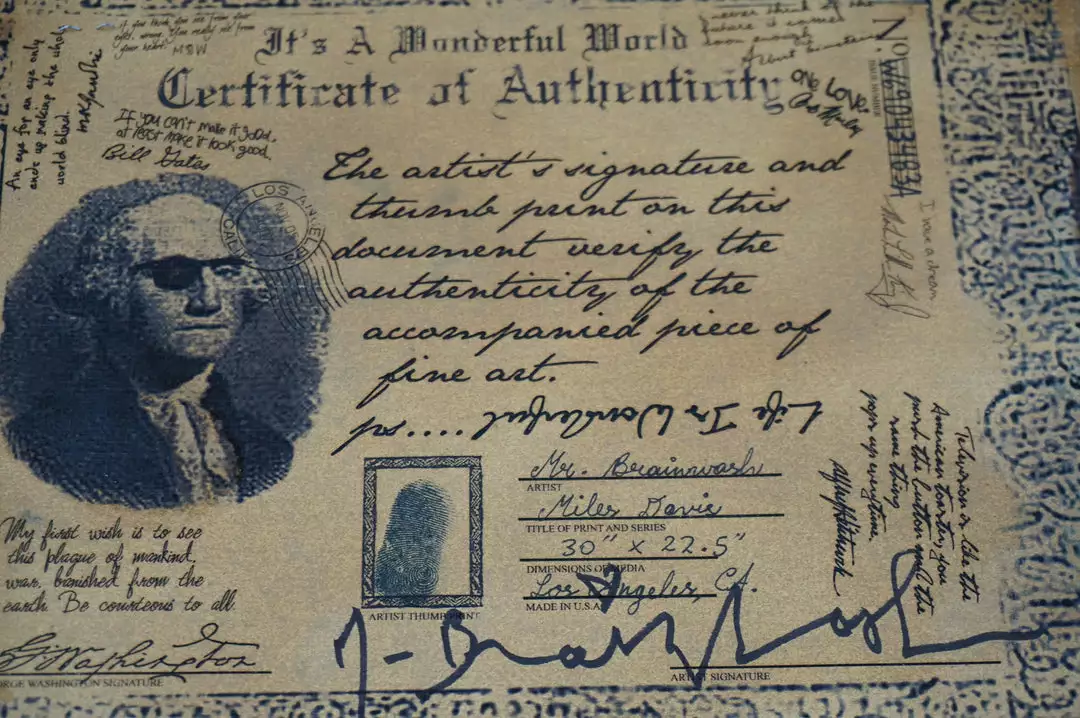 It's A Wonderful World
Certificate of Authenticity
An eye for an eye only
ends up making the whole
world blind.
if you think you see me from your
eyes, wrong. You really see me from
your heart.
never think of the
future it comes
soon enough
Albert Einstein
ONE LOVE
Bob Marley
If you can't make it good,
at least make it look good.
Bill Gates
No.
ISSUE NUMBER
I have a dream
LOS ANGELES
CALIF
The artist's signature and
thumb print on this
document verify the
authenticity of the
accompanied piece of
fine art.
ps..... Life Is Wonderful
Television is like the
American toaster, you
push the button and the
same thing
pops up everytime.
Alfred Hitchcock
Mr. Brainwash
ARTIST
Miles Davis
TITLE OF PRINT AND SERIES
30" x 22.5"
DIMENSIONS OF MEDIA
Los Angeles, CA.
MADE IN U.S.A
ARTIST THUMB PRINT
My first wish is to see
this plague of mankind,
war, banished from the
earth. Be courteous to all.
G Washington
ORGE WASHINGTON SIGNATURE
ARTIST SIGNATURE